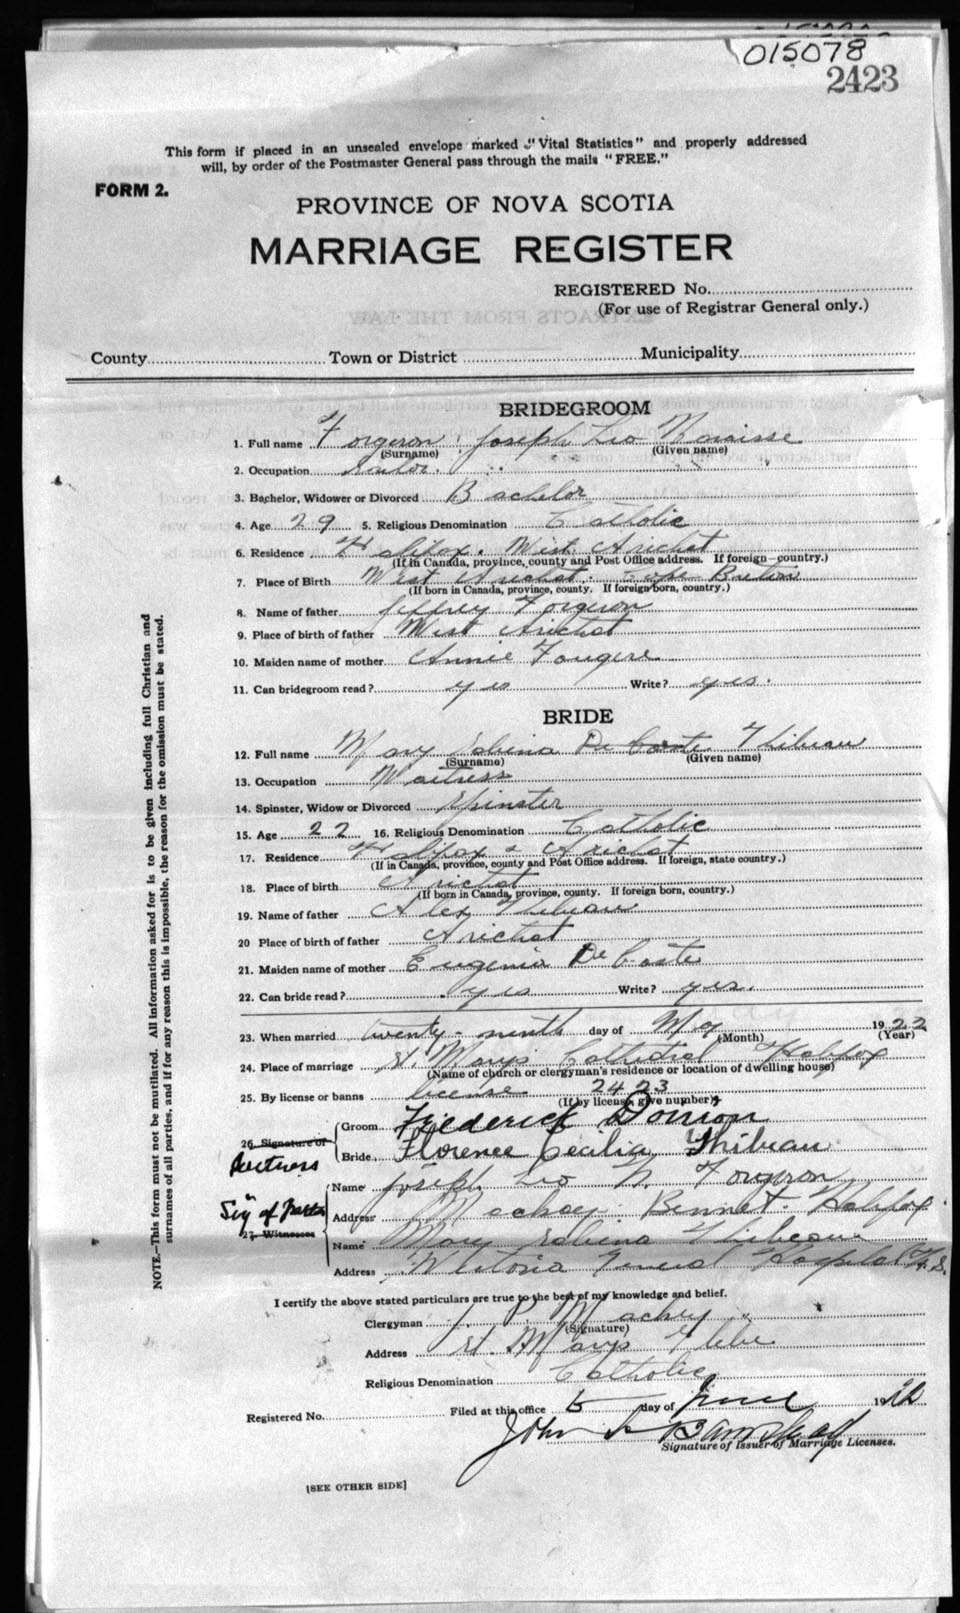 015078
2423
This form if placed in an unsealed envelope marked "Vital Statistics" and properly addressed
will, by order of the Postmaster General pass through the mails "FREE."
FORM 2.
PROVINCE OF NOVA SCOTIA
MARRIAGE REGISTER
REGISTERED No.
(For use of Registrar General only.)
County Town or District Municipality
BRIDEGROOM
1. Full name Forgeron Joseph Leo Narcisse
(Surname) (Given name)
2. Occupation Sailor.
3. Bachelor, Widower or Divorced Bachelor
4. Age 29 5. Religious Denomination Catholic
6. Residence Halifax. West Arichat
(If in Canada, province, county and Post Office address. If foreign country.)
7. Place of Birth West Arichat. Cape Breton
(If born in Canada, province, county. If foreign born, country.)
8. Name of father Jeffrey Forgeron
9. Place of birth of father West Arichat
10. Maiden name of mother Annie Fougere
11. Can bridegroom read? yes Write? yes.
BRIDE
12. Full name Mary Edvina De Coste Thibeau
(Surname) (Given name)
13. Occupation Waitress
14. Spinster, Widow or Divorced Spinster
15. Age 22 16. Religious Denomination Catholic
17. Residence Halifax & Arichat
(If in Canada, province, county and Post Office address. If foreign, state country.)
18. Place of birth Arichat
(If born in Canada, province, county. If foreign born, country.)
19. Name of father Alex Thibeau
20 Place of birth of father Arichat
21. Maiden name of mother Eugenia De Coste
22. Can bride read? yes Write? yes.
23. When married twenty-ninth day of May 1922
(Month) (Year)
24. Place of marriage St. Mary's Cathedral Halifax
(Name of church or clergyman's residence or location of dwelling house)
25. By license or banns license 2423
(If by license, give number)
Groom Frederick
26. Signature of
Bride Florence Cecilia Thibeau
Witness
Name Joseph Leo N. Forgeron
Sig of Parties
Address Bennet. Halifax
27. Witnesses
Name Mary Edvina Thibeau
Address Victoria General Hospital
I certify the above stated particulars are true to the best of my knowledge and belief.
Clergyman
(Signature)
Address St. Mary's Glebe
Religious Denomination Catholic
Registered No. Filed at this office 5 day of June 1922
John
Signature of Issuer of Marriage Licenses.
[SEE OTHER SIDE]
NOTE.—This form must not be mutilated. All information asked for is to be given including full Christian and
surnames of all parties, and if for any reason this is impossible, the reason for the omission must be stated.